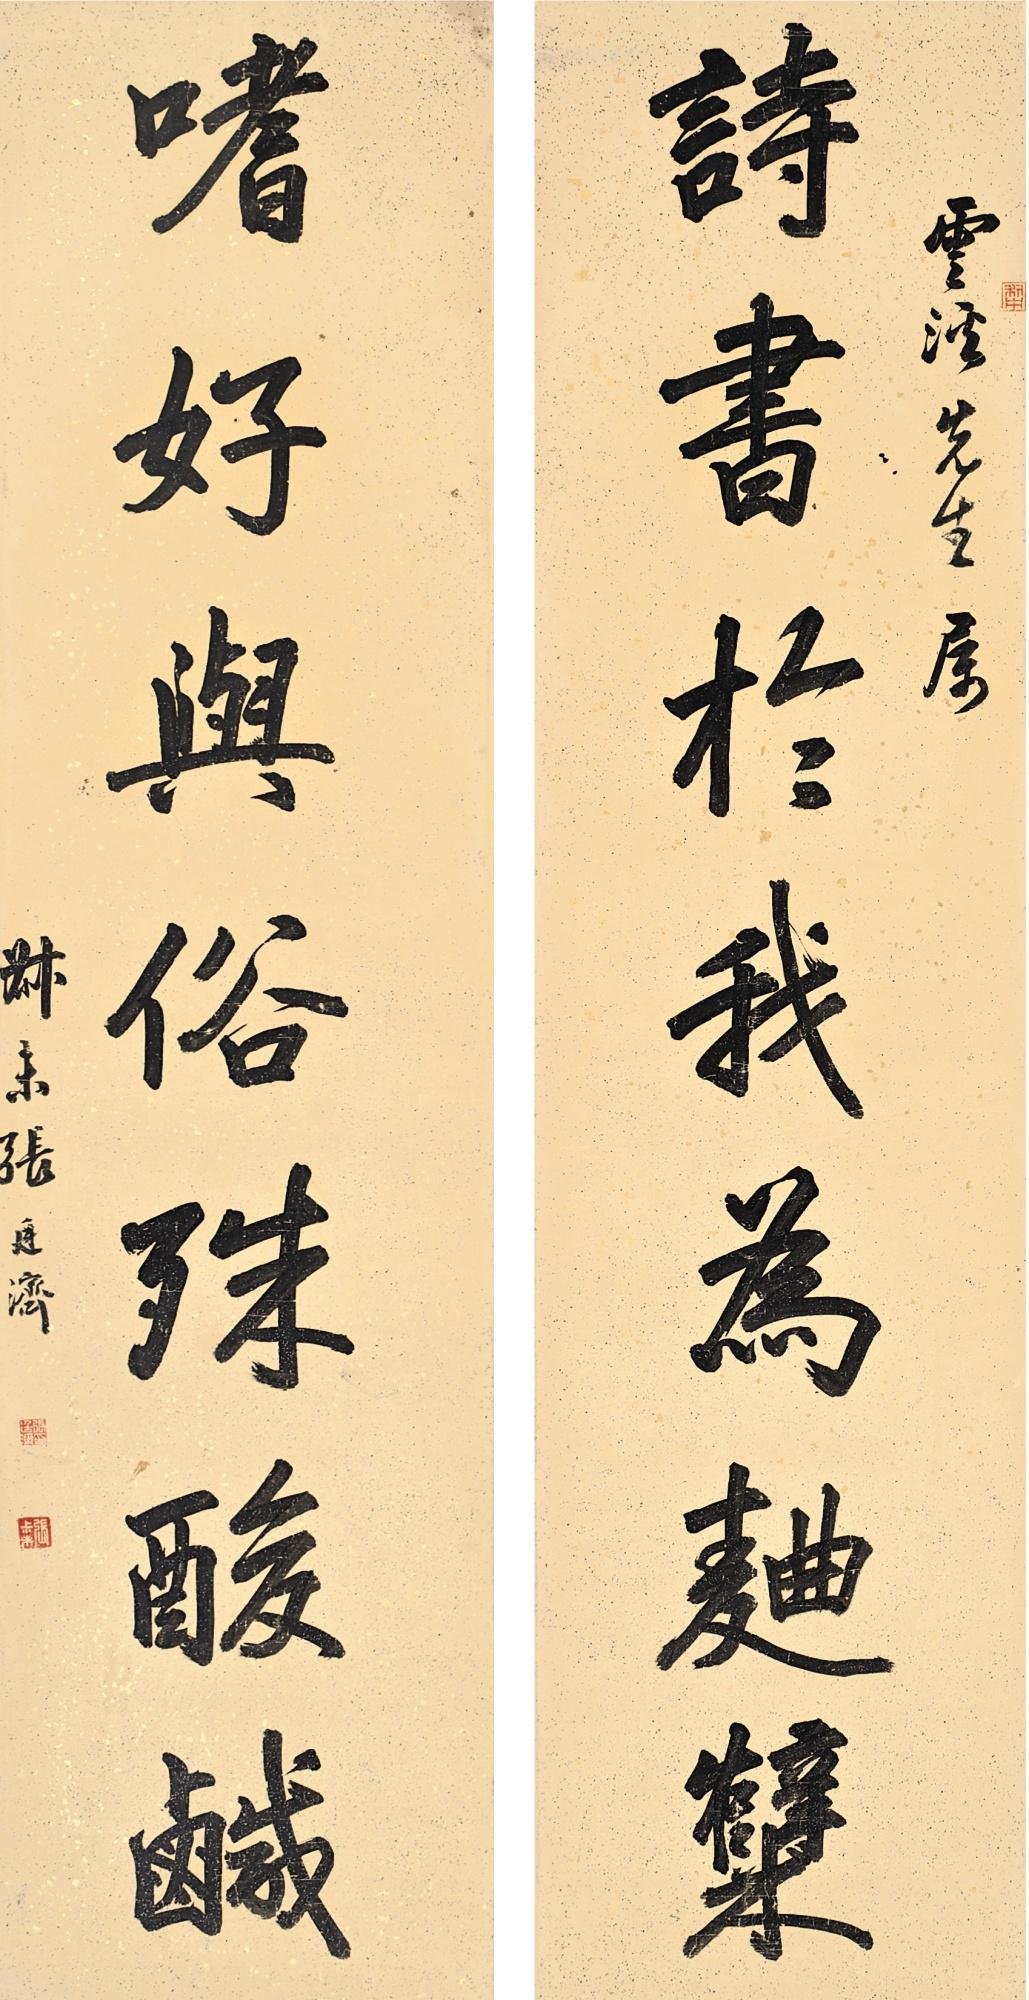 雲溪先生屬
詩書於我為麯糵
嗜好與俗殊酸鹹
尗未張廷濟